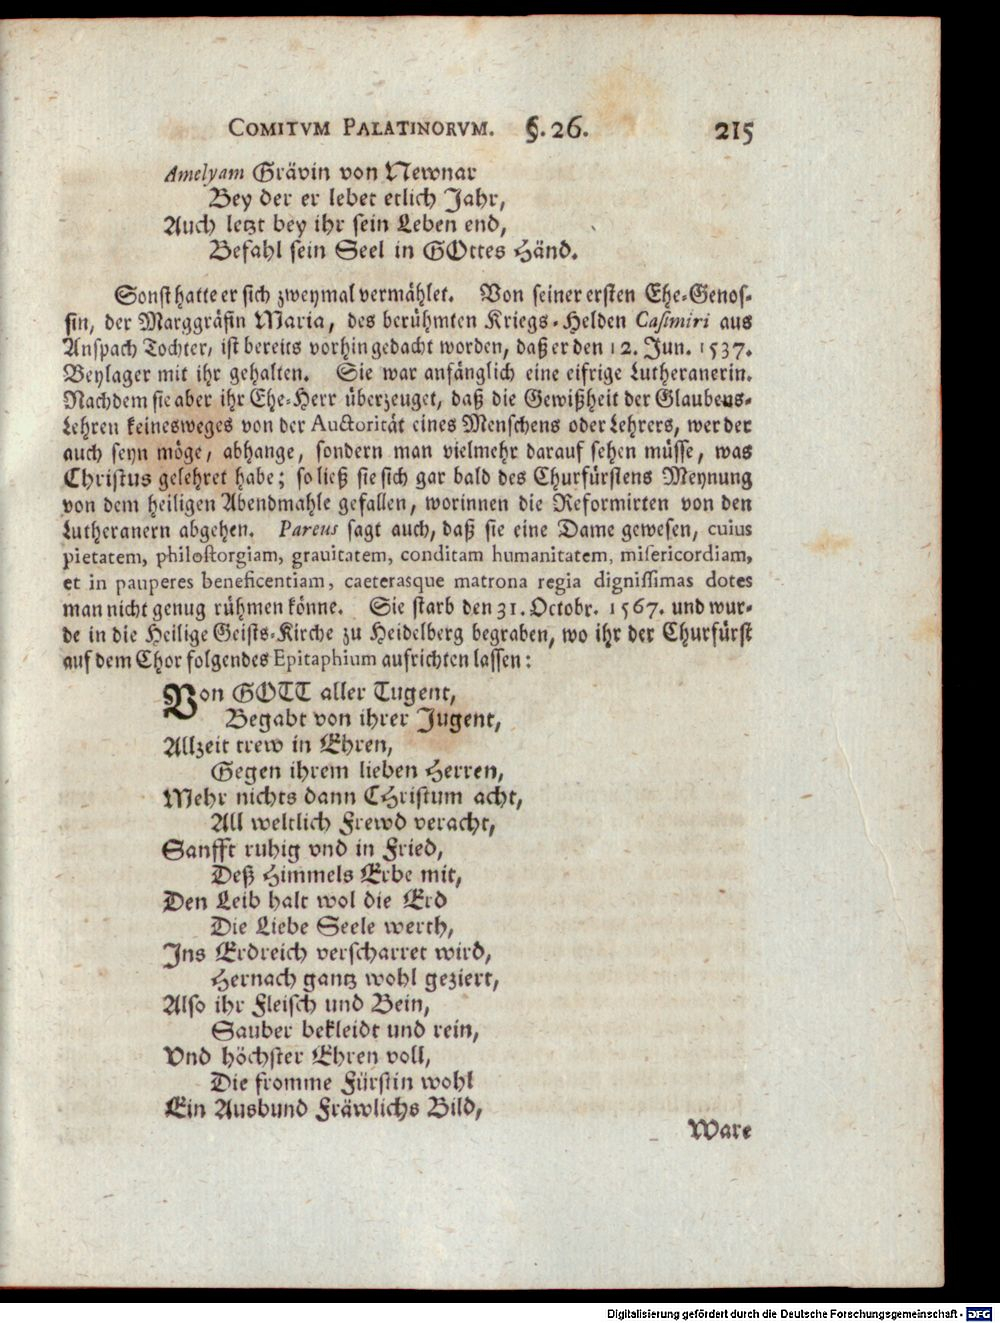 COMITVM PALATINORVM. §. 26. 215
Amelyam Grävin von Newnar
Bey der er lebet etlich Jahr,
Auch letzt bey ihr sein Leben end,
Befahl sein Seel in GOttes Händ.
Sonst hatte er sich zweymal vermählet. Von seiner ersten Ehe-Genos-
sin, der Marggräfin Maria, des berühmten Kriegs-Helden Casimiri aus
Anspach Tochter, ist bereits vorhin gedacht worden, daß er den 12. Jun. 1537.
Beylager mit ihr gehalten. Sie war anfänglich eine eifrige Lutheranerin.
Nachdem sie aber ihr Ehe-Herr überzeuget, daß die Gewißheit der Glaubens-
Lehren keinesweges von der Auctorität eines Menschens oder Lehrers, wer der
auch seyn möge, abhange, sondern man vielmehr darauf sehen müsse, was
Christus gelehret habe; so ließ sie sich gar bald des Churfürstens Meynung
von dem heiligen Abendmahle gefallen, worinnen die Reformirten von den
Lutheranern abgehen. Pareus sagt auch, daß sie eine Dame gewesen, cuius
pietatem, philostorgiam, grauitatem, conditam humanitatem, misericordiam,
et in pauperes beneficentiam, caeterasque matrona regia dignissimas dotes
man nicht genug rühmen könne. Sie starb den 31. Octobr. 1567. und wur-
de in die Heilige Geists-Kirche zu Heidelberg begraben, wo ihr der Churfürst
auf dem Chor folgendes Epitaphium aufrichten lassen:
Von GOTT aller Tugent,
Begabt von ihrer Jugent,
Allzeit trew in Ehren,
Gegen ihrem lieben Herren,
Mehr nichts dann CHristum acht,
All weltlich Frewd veracht,
Sanfft ruhig vnd in Fried,
Deß Himmels Erbe mit,
Den Leib halt wol die Erd
Die Liebe Seele werth,
Ins Erdreich verscharret wird,
Hernach gantz wohl geziert,
Also ihr Fleisch und Bein,
Sauber bekleidt und rein,
Vnd höchster Ehren voll,
Die fromme Fürstin wohl
Ein Ausbund Fräwlichs Bild,
Ware
Digitalisierung gefördert durch die Deutsche Forschungsgemeinschaft - DFG